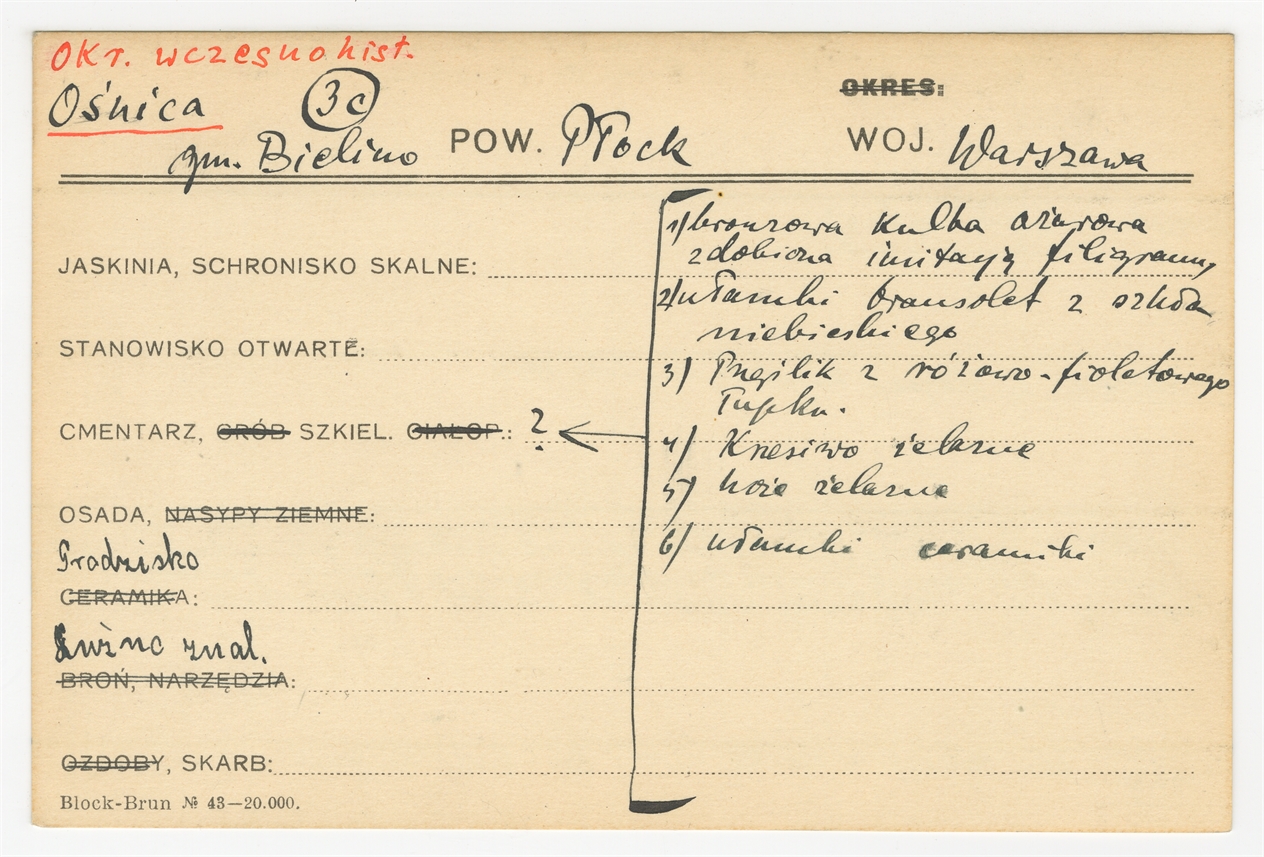 Okr. wczesnohist.
Ośnica 3c OKRES:
gm. Bielino POW. Płock WOJ. Warszawa
1) bronzowa kulka ażurowa
zdobiona imitacją filigranu
JASKINIA, SCHRONISKO SKALNE:
2) ułamki bransolet z szkła
niebieskiego
STANOWISKO OTWARTE:
3) Przęślik z różowo-fioletowego
łupku.
CMENTARZ, GRÓB SZKIEL. CIAŁOP.: ?
4) Krzesiwo żelazne
5) noże żelazne
OSADA, NASYPY ZIEMNE:
6) ułamki ceramiki
Grodzisko
CERAMIKA:
Luźne znal.
BROŃ, NARZĘDZIA:
OZDOBY, SKARB:
Block-Brun № 43—20.000.